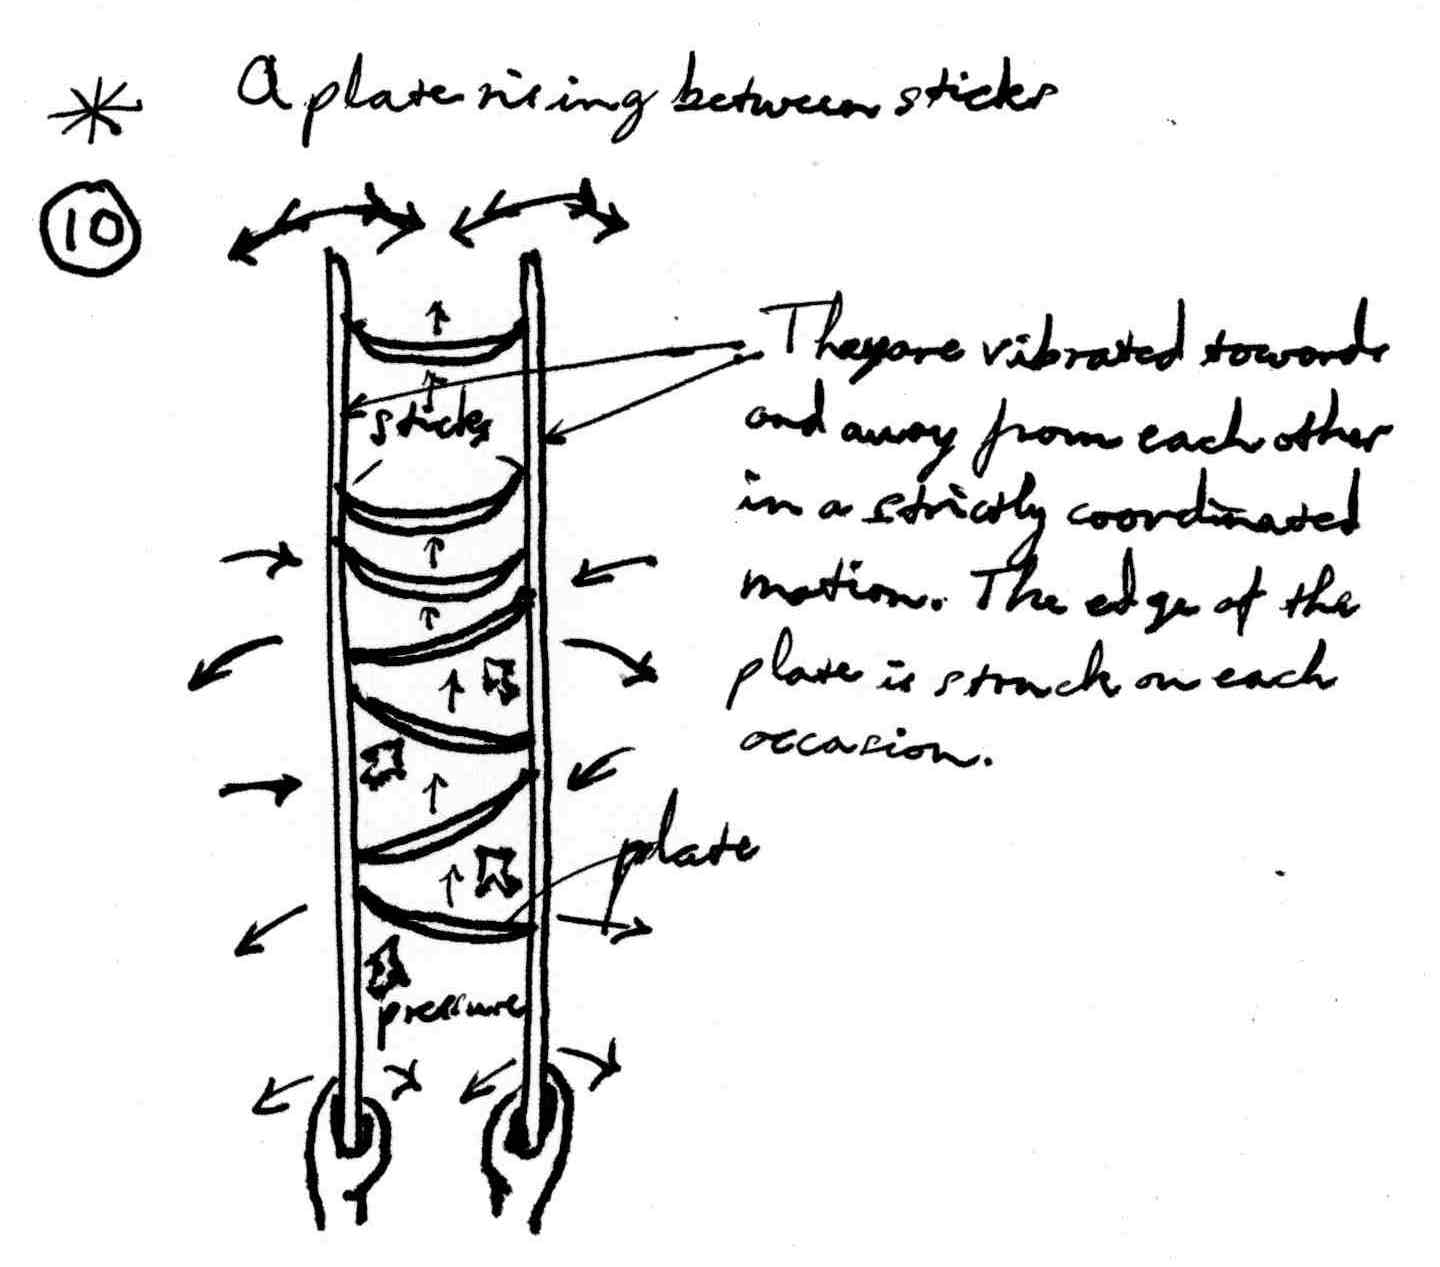 A plate rising between sticks
10
They are vibrated towards
and away from each other
sticks
in a strictly coordinated
motion. The edge of the
plate is struck on each
occasion.
plate
pressure